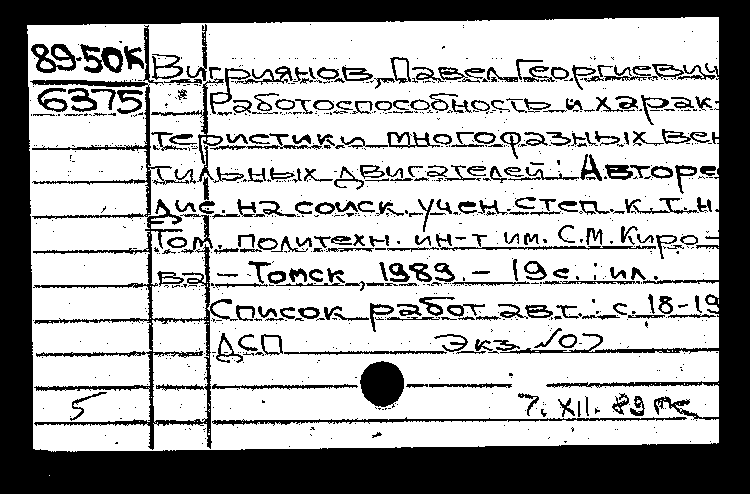 89-50К Вигриянов, Павел Георгиевич
6375 * Работоспособность и харак-
теристики многофазных вен
тильных двигателей: Авторе
дис. на соиск. учен. степ. к.т.н.
Том. политехн. ин-т им. С.М. Киро-
ва - Томск, 1989. - 19 с.: ил.
Список работ авт.: с. 18-19
ДСП Экз. №07
5 7. XII. 89